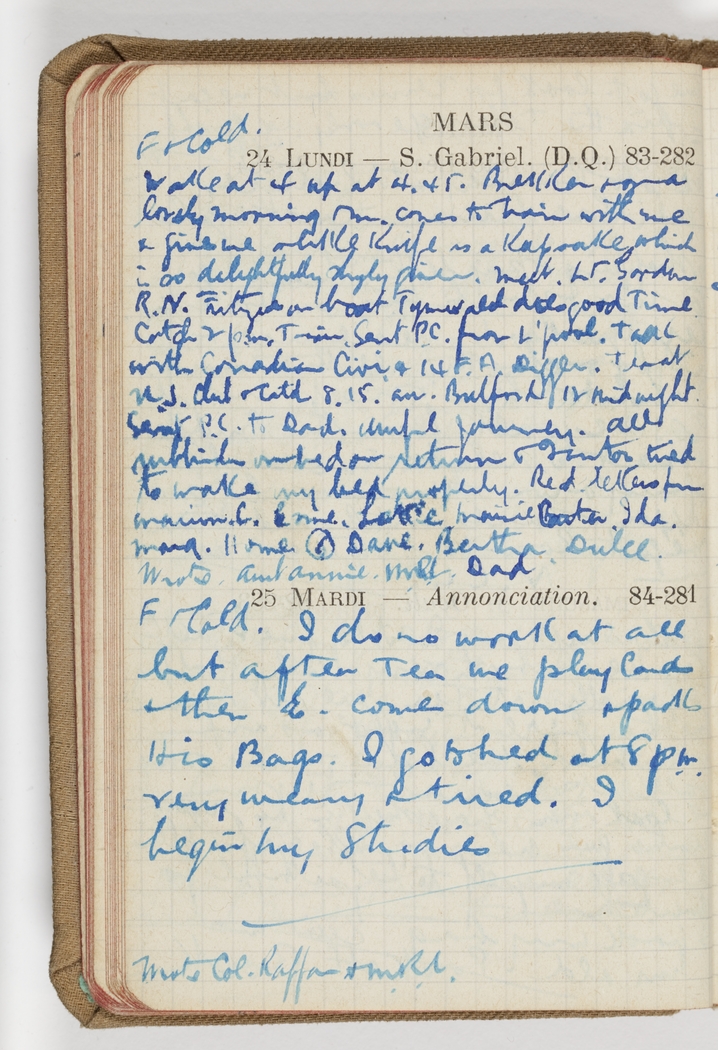 MARS
F & Cold.
24 LUNDI — S. Gabriel. (D.Q.) 83-282
Wake at 4 up at 4.45. Brekker & on a
lovely morning Mm. comes to train with me
& gives me a little Knife as a Kapsake, which
is so delightfully given. Meet. Lt. Gordon
R.N. on boat Tynwald does good Time.
Catch 2 pm. Train. Sent P.C. from L'pool. Talk
with Canadian Civi, & 14 F.A. Digger. Tea at
Club & Catch 8.15. arr. Bulford 12 midnight.
Sent P.C. to Dad. awful journey. all
in bed on return &
to make my bed properly. Red. letters from
Marion. C. Lottie, Marie Ida.
Home (8) Dave. Bertha. Dulce.
Wrote. aunt annie. Dad
25 MARDI — Annonciation. 84-281
F & Cold. I do no work at all
but after Tea we play Cards
& then E. come down & packs
His Bags. I go to bed at 8 pm.
very weary & tired. I
begin my Studies
Wrote Col.